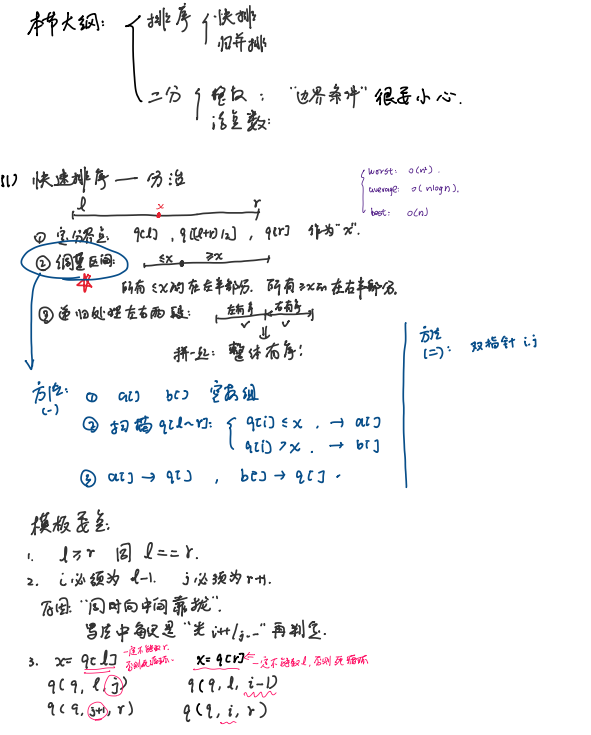 本节大纲: 排序 快排
归并排
二分 整数: "边界条件" 很要小心.
浮点数:
(1) 快速排序 — 分治
worst: O(n²).
average: O(nlogn).
best: O(n)
l x r
① 定分界点: q[l], q[(l+r)/2], q[r] 作为"x".
② 调整区间: ≤x ≥x
所有≤x的在左半部分. 所有≥x的在右半部分.
③ 递归处理左右两段: 左有序 右有序
拼一起: 整体有序!
方法(一): ① a[] b[] 空数组
② 扫描q[l~r]: q[i]≤x, → a[]
q[i]>x, → b[]
③ a[] → q[], b[] → q[].
方法(二): 双指针 i.j
模板要点:
1. l≥r 同 l==r.
2. i必须为 l-1. j必须为r+1.
原因: "同时向中间靠拢".
算法中每次是"先i++/j--"再判定.
3. x=q[l] 一定不能取r, 否则死循环. x=q[r] ← 一定不能取l, 否则死循环
q(q, l, j) q(q, l, i-1)
q(q, j+1, r) q(q, i, r)